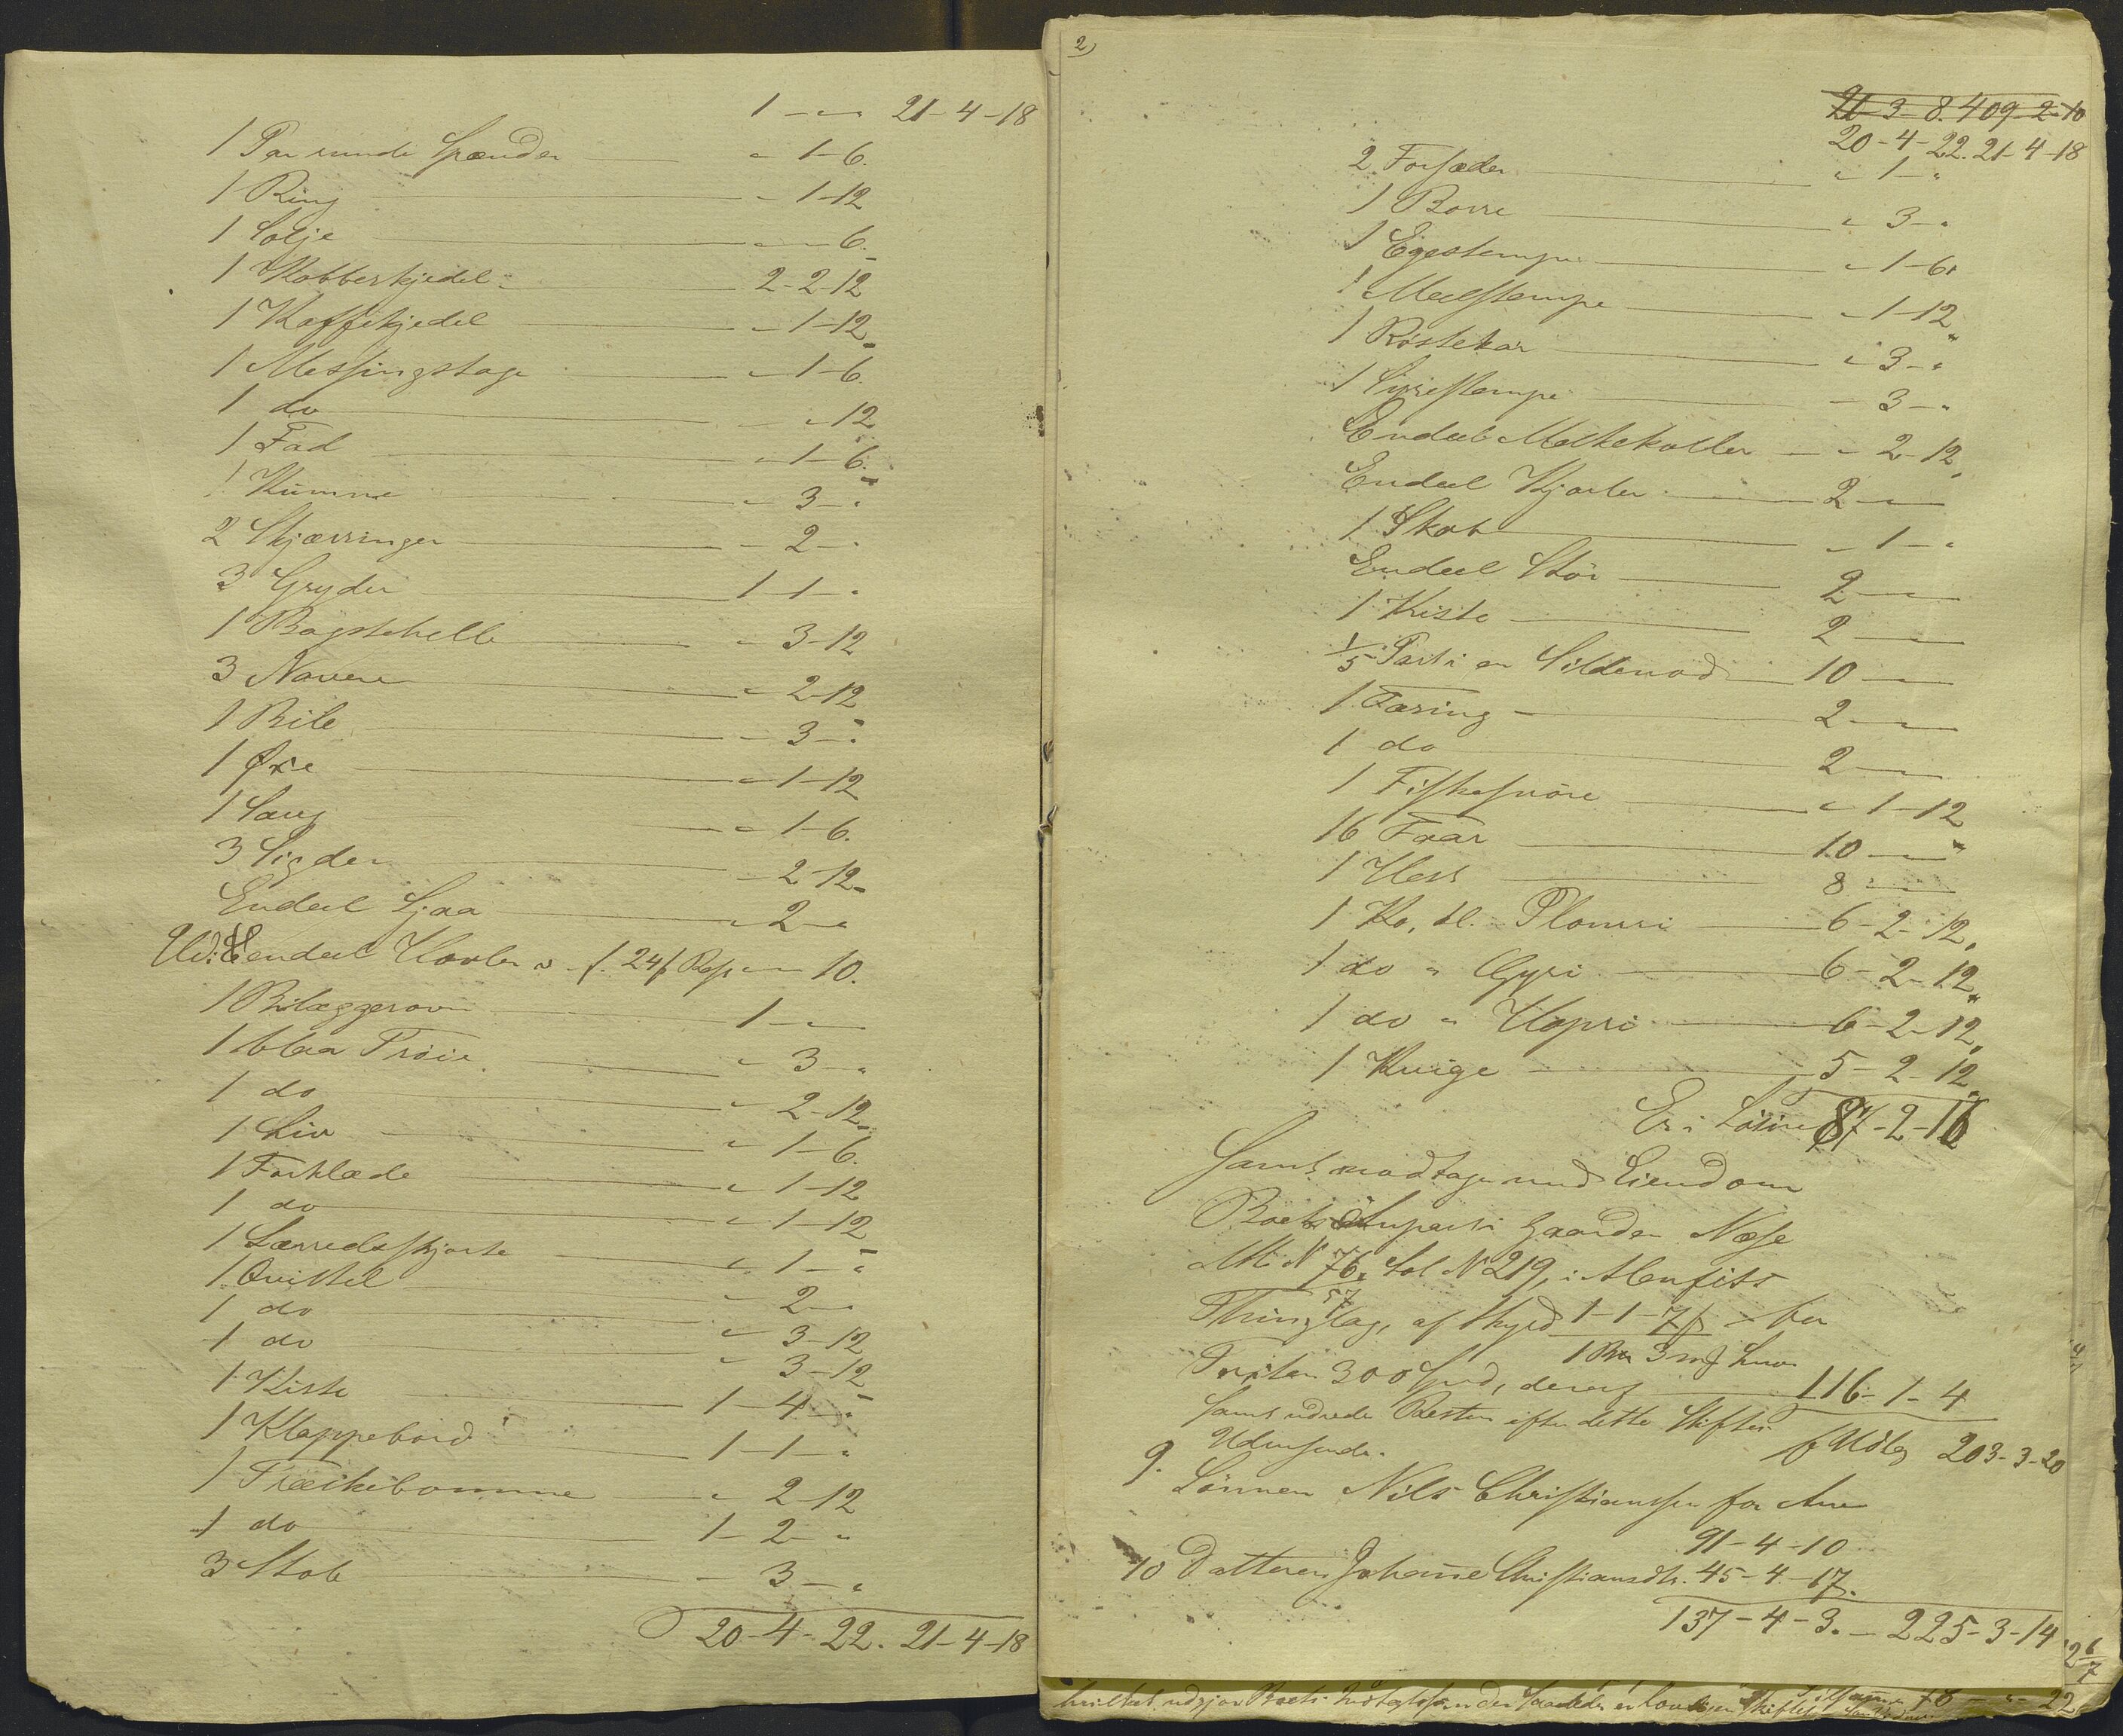 1 - " - " 21-4-18
1 Par runde Spænder " 1-6.
1 Ring " 1-12
1 Solje " - " - 6.
1 Kobberkjedel 2-2-12
1 Kaffekjedel " 1-12
1 Messingstage " 1-6
1 do " " 12
1 Fad " 1-6.
1 Kumme " 3 - "
2 Skjærringer " 2 - "
3 Gryder 1-1 - "
1 Bagstehelle " 3-12
3 Navere " 2-12
1 Bile " 3 - "
1 Øxe " 1-12
1 Saug " 1-6.
3 Sigder " 2-12
Endeel Ljaa " 2 - "
endeel Hovler 24 10.
1 Bilæggerovn 1 - " - "
1 blaa Trøie " 3 - "
1 do " 2-12
1 Liv " 1-6.
1 Forklæde " 1-12
1 do " 1-12
1 Lærredsskjorte " 1 - "
1 Qvittel " 2 - "
1 do " 3-12
1 do " 3-12
1 Kiste 1-4 - "
1 Klappebord 1-1 - "
1 Træskebomme " 2-12
1 do 1-2 - "
3 Stole " 3 - "
20-4-22. 21-4-18
2)
21-3-8. 409-2-10
20-4-22. 21-4-18
2 Forsæder " 1 - "
1 Borre " 3 - "
1 Egestampe " 1-6.
1 Meelstampe " 1-12
1 Røstekar " 3 - "
1 Syrestampe " 3 - "
Endeel Melkekoller " 2-12
Endeel Kjørler 2 - " - "
1 Skab " 1 - "
Endeel Stör 2 - " - "
1 Kiste 2 - " - "
1/5 Part i en Sildenod 10 - " - "
1 Færing 2 - " - "
1 do 2 - " - "
1 Fiskesnöre " 1-12
16 Faar 10 - " - "
1 Hest 8 - " - "
1 Ko, kl. Plomri 6-2-12.
1 do " 6-2-12
1 do " 6-2-12.
1 Kvige 5-2-12
Er i Løsøre 87-2-16
Samt modtager med Eiendom
Boets Anpart i Gaarden Næse
Mt. N 76, Løb N 219, i Alenfits
57
Thinglag, af Skyld 1-1-7 β for
1 3 m
Taxten 300 Spd, deraf 116-1-4
samt udrede Resten efter dette Skiftes
Udvisende. Udlæg 203-3-20
9. Sönnen Nils Christiansen for Arv
91-4-10
10 Datteren Johanne Christiansdtr. 45-4-17.
137-4-3. - 225-3-14
2 6/7
hvilket udgjør Boets